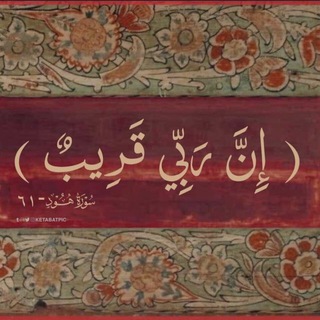 ( إِنَّ رَبِّي قَرِيبٌ )
سُورَةُ هُود - ٦١
@KETABATPIC